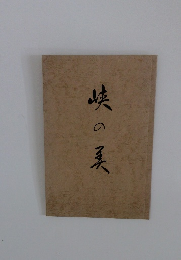 峡の美